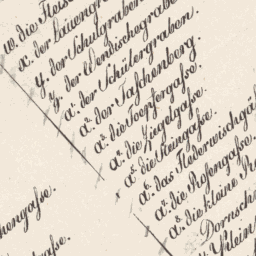 w. die Fleis
x. der Lauengra
y. der Schulgraben.
z. der Wendischegraben
a¹. der Schützergraben.
a². der Taschenberg.
a³. die Toepfergaſse.
a⁴. die Ziegelgaſse.
a⁵. die Reingaſse.
a⁶. das Niederwischgä
a⁷. die Rosengaſse.
a⁸. die kleine R
Dornsche
Klein
hengaſse.
gaſse.